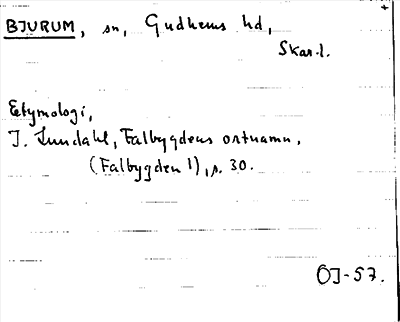 BJURUM, sn, Gudhems hd,
Skar.l.
Etymologi,
I. Lundahl, Falbygdens ortnamn,
(Falbygden 1), s. 30.
ÖJ-57.